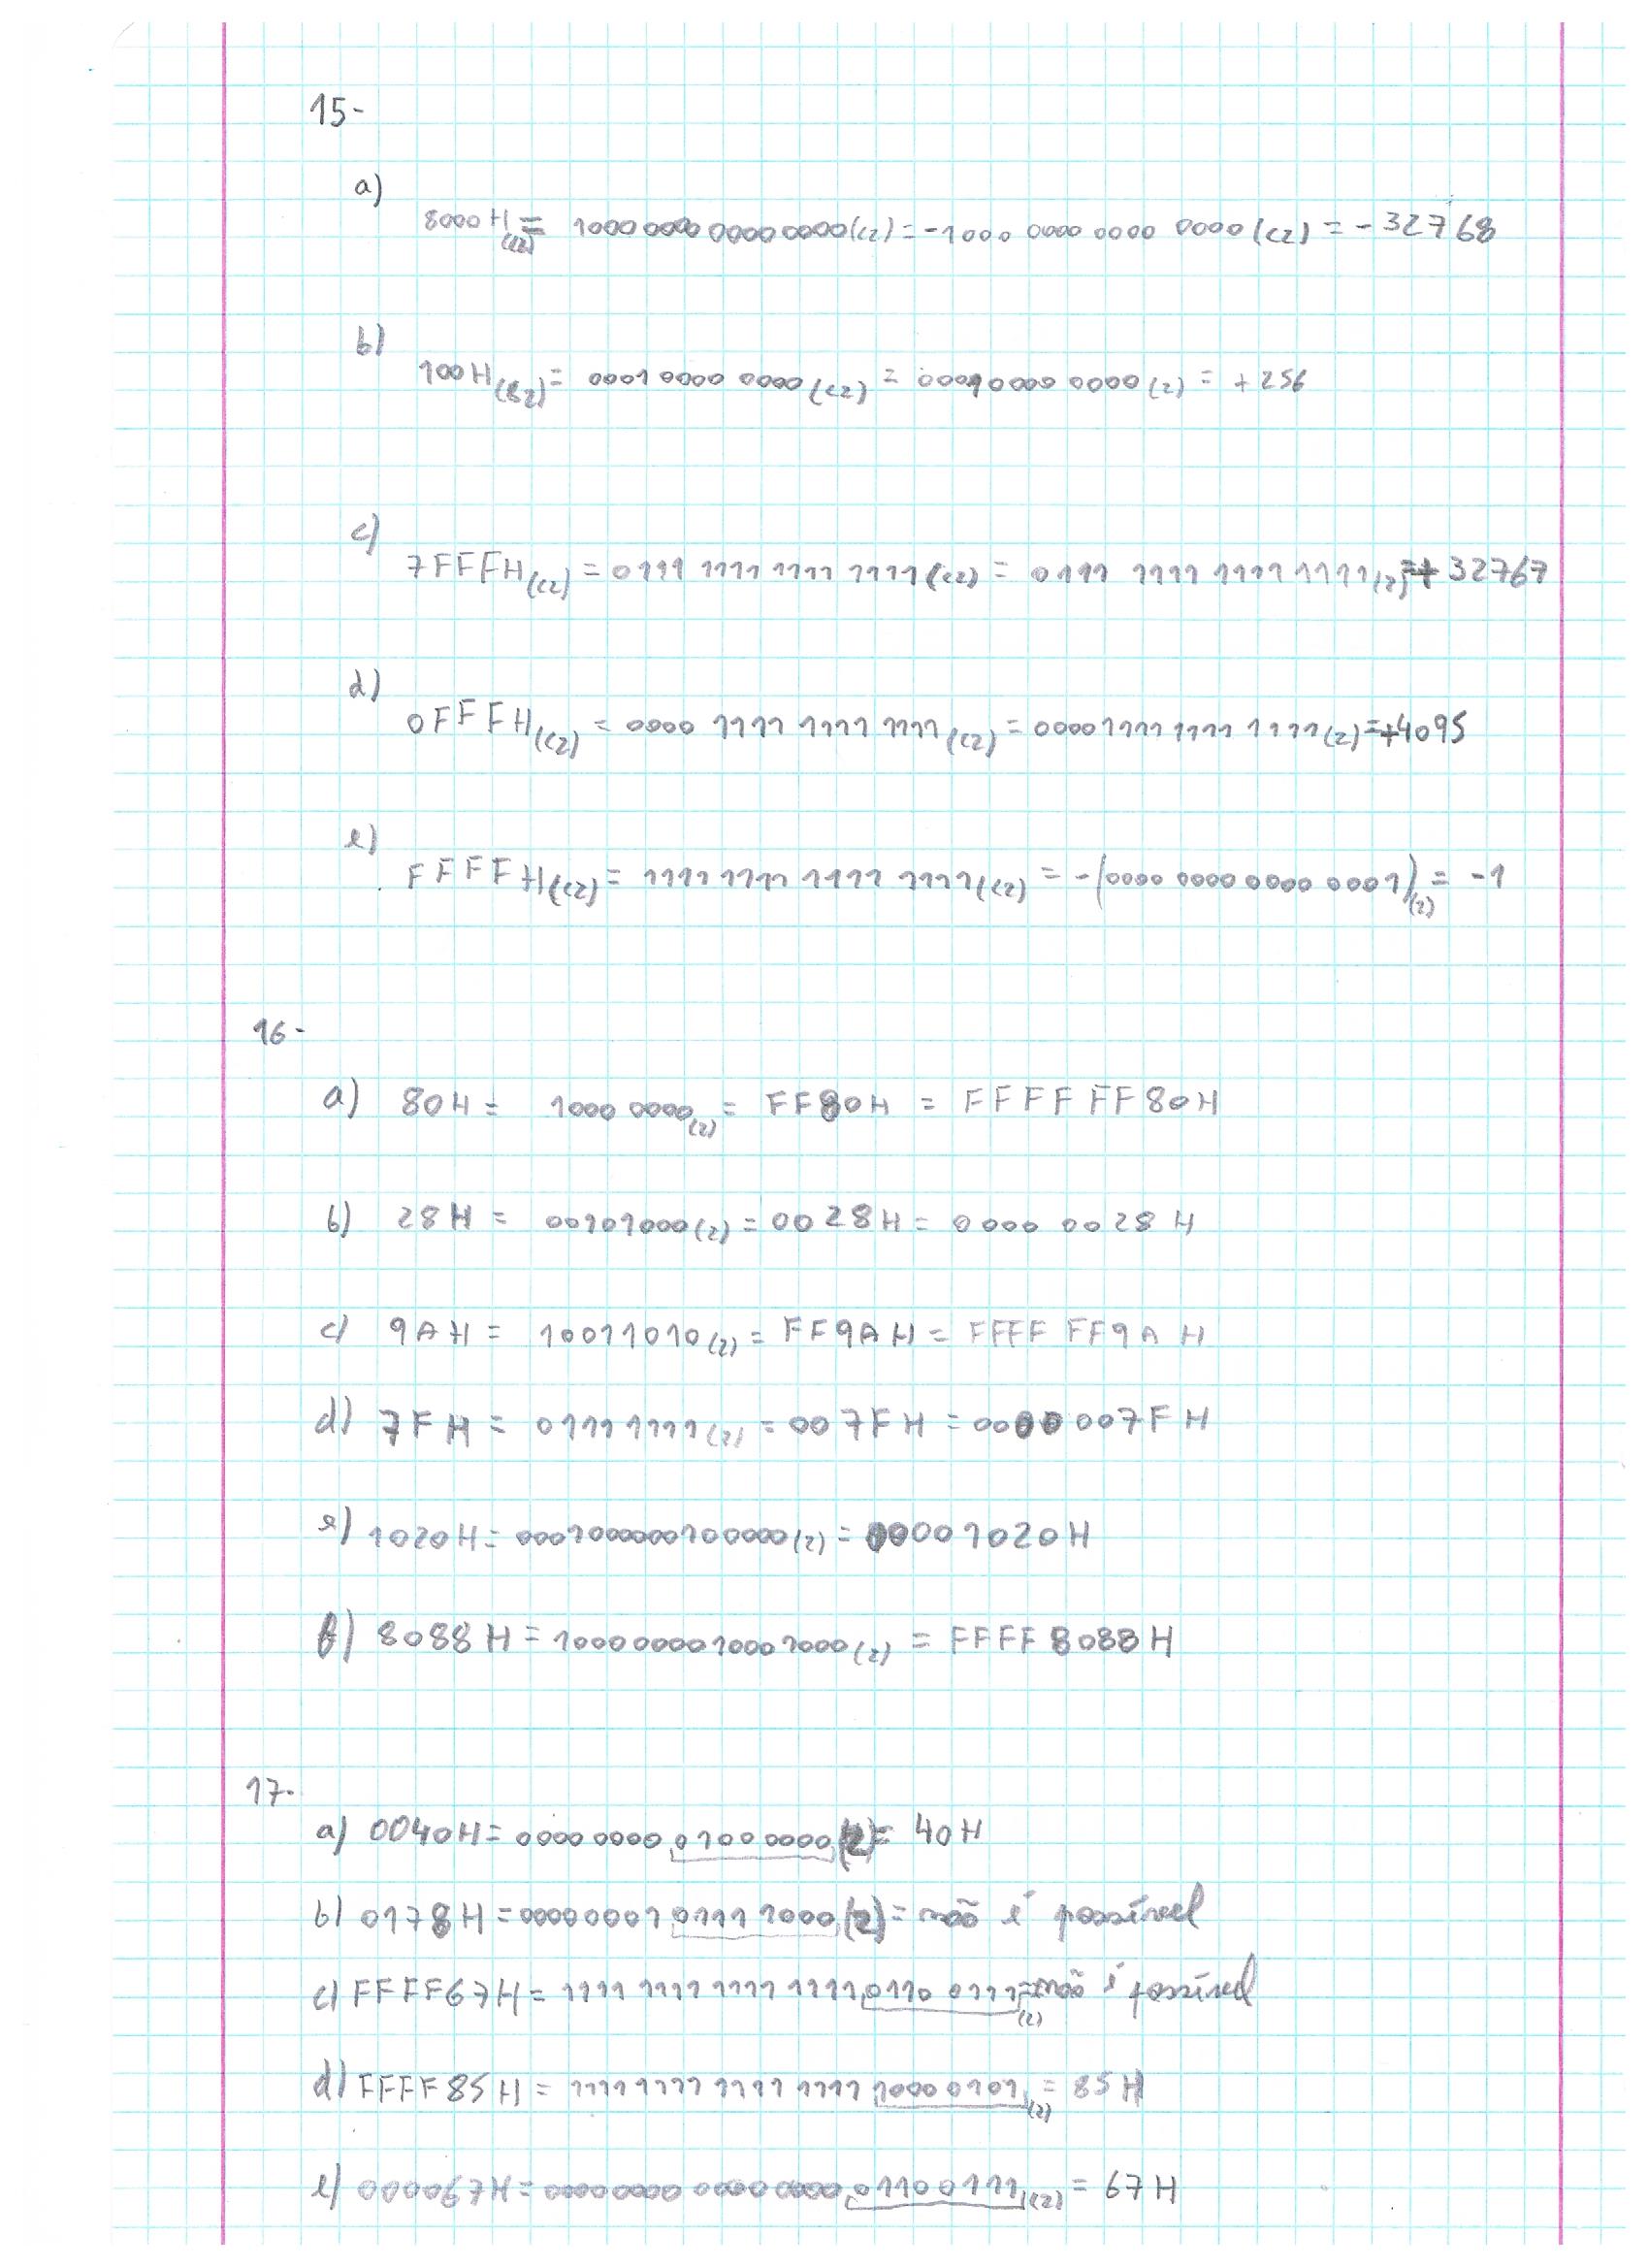 15-
a)
8000H(c2) = 1000 0000 0000 0000(c2) = -1000 0000 0000 0000(c2) = -32768
b)
100H(82) = 0001 0000 0000(c2) = 0001 0000 0000(2) = +256
c)
7FFFH(c2) = 0111 1111 1111 1111(c2) = 0111 1111 1111 1111(2) = +32767
d)
0FFFH(c2) = 0000 1111 1111 1111(c2) = 0000 1111 1111 1111(2) = +4095
e)
FFFFH(c2) = 1111 1111 1111 1111(c2) = -(0000 0000 0000 0001)(2) = -1
16-
a) 80H = 1000 0000(2) = FF80H = FFFF FF80H
b) 28H = 00101000(2) = 0028H = 0000 0028H
c) 9AH = 10011010(2) = FF9AH = FFFF FF9AH
d) 7FH = 0111 1111(2) = 007FH = 0000 007FH
e) 1020H = 0001000000100000(2) = 00001020H
f) 8088H = 1000000010001000(2) = FFFF 8088H
17-
a) 0040H = 0000 0000 0100 0000(2) = 40H
b) 0178H = 00000001 0111 1000(2) = não é possível
c) FFFF67H = 1111 1111 1111 1111 0110 0111(2) = não é possível
d) FFFF85H = 1111 1111 1111 1111 1000 0101(2) = 85H
e) 000067H = 00000000 00000000 01100111(2) = 67H